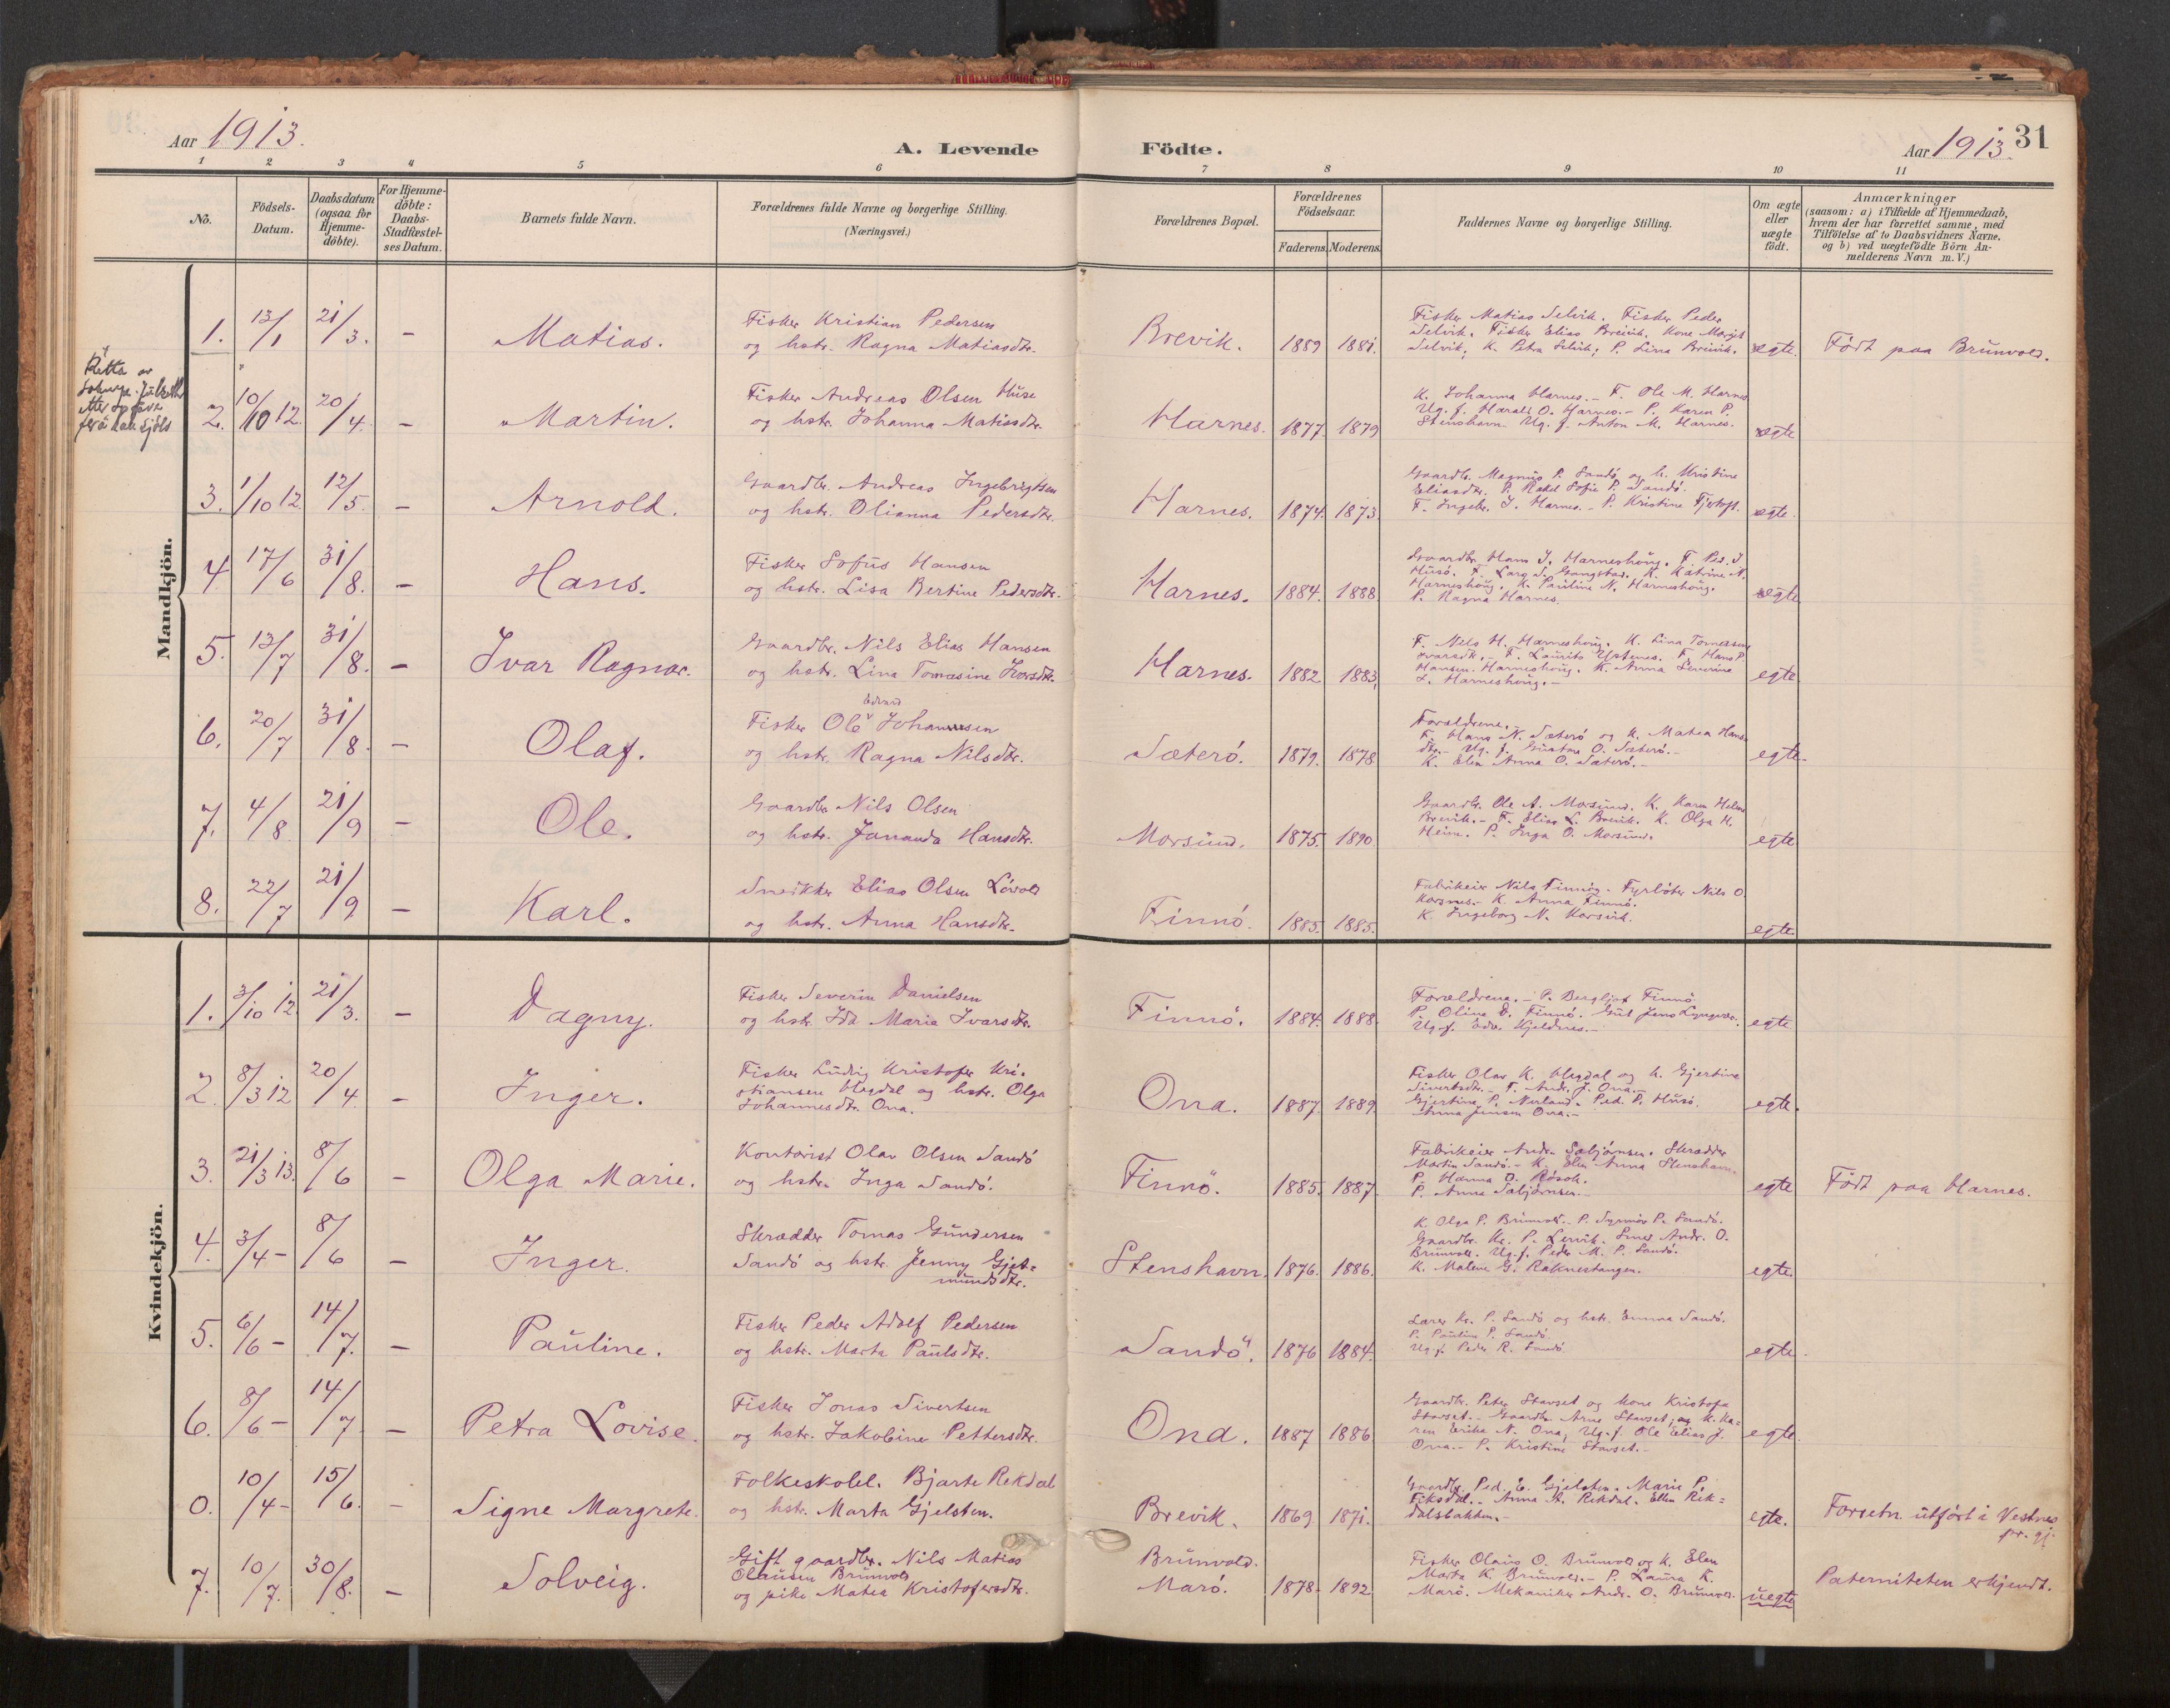 Aar 1913.
A. Levende Födte.
Aar 1913. 31
1 2 3 4 5 6 7 8 9 10 11
No.
Födsels-Datum.
Daabsdatum (ogsaa for Hjemme-döbte).
For Hjemme-döbte: Daabs-Stadfæstel-ses Datum.
Barnets fulde Navn.
Forældrenes fulde Navne og borgerlige Stilling.
(Næringsvei.)
Forældrenes Bopæl.
Forældrenes Födselsaar.
Faderens. Moderens.
Faddernes Navne og borgerlige Stilling.
Om ægte eller uægte födt.
Anmærkninger
(saasom: a) i Tilfælde af Hjemmedaab,
hvem der har forrettet samme, med
Tilföielse af to Daabsvidners Navne,
og b) ved uægtefödte Börn An-
melderens Navn m.V.)
Mandkjön.
1. 13/1 21/3. - Matias.
Fisker Kristian Pedersen
og hstr. Ragna Matiasdtr.
Brevik. 1889 1881.
Fisker Matias Selvik. Fisker Peder
Selvik. Fisker Elias Breivik. Kone
Selvik, K. Petra Selvik, P. Lina Breivik.
egte. Födt paa Brunvold.
Retta av
etter
2. 10/10 12 20/4. - Martin.
Fisker Andreas Olsen Huse
og hstr. Johanna Matiasdtr.
Harnes. 1877 1879
K. Johanna Harnes. - F. Ole M. Harnes
Ug. f. Harald O. Harnes. - P. Karen P.
Stenshavn. Ug. f. Anton M. Harnes.
egte
3. 1/10 12. 12/5. - Arnold.
Gaardbr. Andreas Ingebrigtsen
og hstr. Olianna Pedersdtr.
Harnes. 1874. 1873.
Gaardbr. Magnus P. Sandö og h. Kristine
Eliasdtr. P. Rakel Sofie P. Sandö.
F. Ingebr. J. Harnes. - P. Kristine Fjertoft.
egte.
4. 17/6 31/8. - Hans.
Fisker Sofus Hansen
og hstr. Lisa Bertine Pedersdtr.
Harnes. 1884. 1888.
Gaardbr. Hans J. Harneshoug. F. Ped. J.
Husö. F. Lars S. Gangstad. K. Katrine N.
Harneshoug. K. Pauline N. Harneshoug.
P. Ragna Harnes.
egte
5. 13/7 31/8. - Ivar Ragnar.
Gaardbr. Nils Elias Hansen
og hstr. Lina Tomasine Ivarsdtr.
Harnes. 1882 1883.
F. Nils H. Harneshoug. K. Lina Tomasine
Ivarsdtr. - F. Laurits Upsenes. F. Hans P.
Hansen Harneshoug. K. Anna Severine
L. Harneshoug. -
egte.
6. 20/7 31/8. - Olaf.
Edvard
Fisker Ole Johannesen
og hstr. Ragna Nilsdtr.
Sæterö. 1879. 1878
Forældrene.
F. Hans N. Sæterö og K. Matea Hans-
dtr. - Ug. f. Gustav O. Sæterö. -
K. Elen Anna O. Sæterö. -
egte.
7. 4/8 21/9 - Ole.
Gaardbr Nils Olsen
og hstr. Jananda Hansdtr.
Morsund. 1875. 1890.
Gaardbr. Ole A. Morsund. K. Karen Helene
Brevik. - F. Elias L. Brevik. K. Olga H.
Heim. P. Inga O. Morsund.
egte
8. 22/7 21/9 - Karl.
Snedkker Elias Olsen Lövold
og hstr. Anna Hansdtr.
Finnö. 1885. 1885.
Fabrikeier Nils Finnöy. Fyrböter Nils O
Korsnes. - K. Anna Finnö.
K. Ingeborg N. Korsvik.
egte
Kvindekjön.
1. 3/10 12. 21/3. - Dagny.
Fisker Severin Danielsen
og hstr. Ida Marie Ivarsdtr.
Finnö. 1884. 1888.
Forældrene. - P. Bergljot Finnö
P. Oline D. Finnö. Jens Lyngvær.
Ug. f. Edv. Kjeldnes. -
egte
2. 8/3 12 20/4. - Inger.
Fisker Ludvig Kristofer Kri-
stiansen Hegdal og hstr. Olga
Johannesdtr. Ona.
Ona. 1887. 1889
Fisker Olav K. Hegdal og h. Gjertine
Sivertsdtr. - F. Andr. J. Ona. -
Gjertine P. Nerland. Ped. P. Husö.
Anna Jensen Ona. -
egte.
3. 21/3 13. 8/6 - Olga Marie.
Kontorist Olav Olsen Sandö
og hstr. Inga Sandö.
Finnö. 1885. 1887.
Fabrikeier Andr. Sæbjörnsen. Skrædder
Martin Sandö. - K. Elen Anna Stenshavn.
P. Hanna O. Rösok.
P. Anna Sæbjörnsen. -
egte Födt paa Harnes.
4. 3/4 - 8/6 - Inger.
Skrædder Tomas Gundersen
Sandö og hstr. Jenny Gjet-
mundsdtr.
Stenshavn. 1876. 1886.
K. Olga P. Brunvold. - P. Synnöv P. Sandö.
Gaardbr. Kr. P. Lervik. Smed Andr. O.
Brunvold. Ug. f. Peder M. P. Sandö.
K. Malene G. Raknestangen.
egte.
5. 6/6 - 14/7. - Pauline.
Fisker Peder Adolf Pedersen
og hstr. Marta Paulsdtr.
Sandö. 1876 1884.
Lærer Kr. P. Sandö og hstr. Emma Sandö.
P. Pauline P. Sandö.
Ug. f. Peder R. Sandö.
egte.
6. 8/6 - 14/7 - Petra Lovise.
Fisker Jonas Sivertsen
og hstr. Jakobine Pettersdtr.
Ona. 1887 1886
Gaardbr. Peter Stavset og Kone Kristofa
Stavset. - Gaardbr. Arne Stavset, og K. Ka-
ren Erika N. Ona, Ug. f. Ole Elias J.
Ona. - P. Kristine Stavset. -
egte.
0. 10/4 - 15/6. - Signe Margrete.
Folkeskolel. Bjarte Rekdal
og hstr. Marta Gjelsten.
Brevik. 1869 1871.
Gaardbr. Ped. E. Gjelsten. Marie P.
Fiksdal. - Anna K. Rekdal. Ellen Rek-
dalsbakken. -
egte. Forretn. utfört i Vestnes
pr. gj.
7. 10/7. 30/8. - Solveig.
Gift gaardbr. Nils Matias
Olausen Brunvold
og pike Matea Kristofersdtr.
Brunvold.
Marö. 1878. 1892
Fisker Olaus O. Brunvold og K. Elen
Marta K. Brunvold. - P. Laura K.
Marö. Mekaniker Andr. O. Brunvold.
uegte Paterniteten erkjendt.